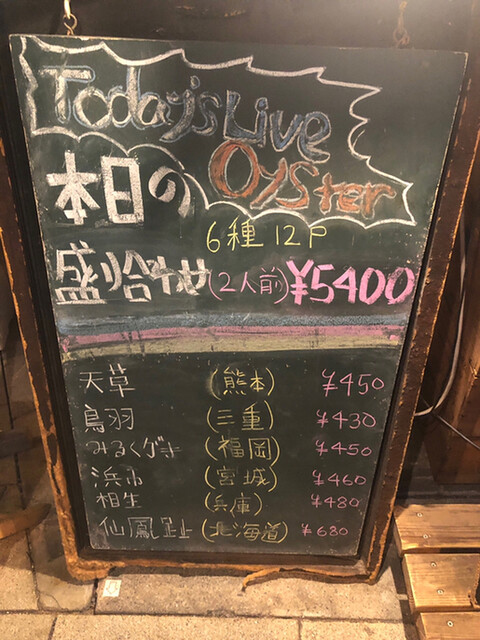 Today's Live
Oyster
本日の
6種 12P
盛り合わせ(2人前)¥5400
天草 (熊本) ¥450
鳥羽 (三重) ¥430
みるくガキ (福岡) ¥450
浜市 (宮城) ¥460
相生 (兵庫) ¥480
仙鳳趾 (北海道) ¥680